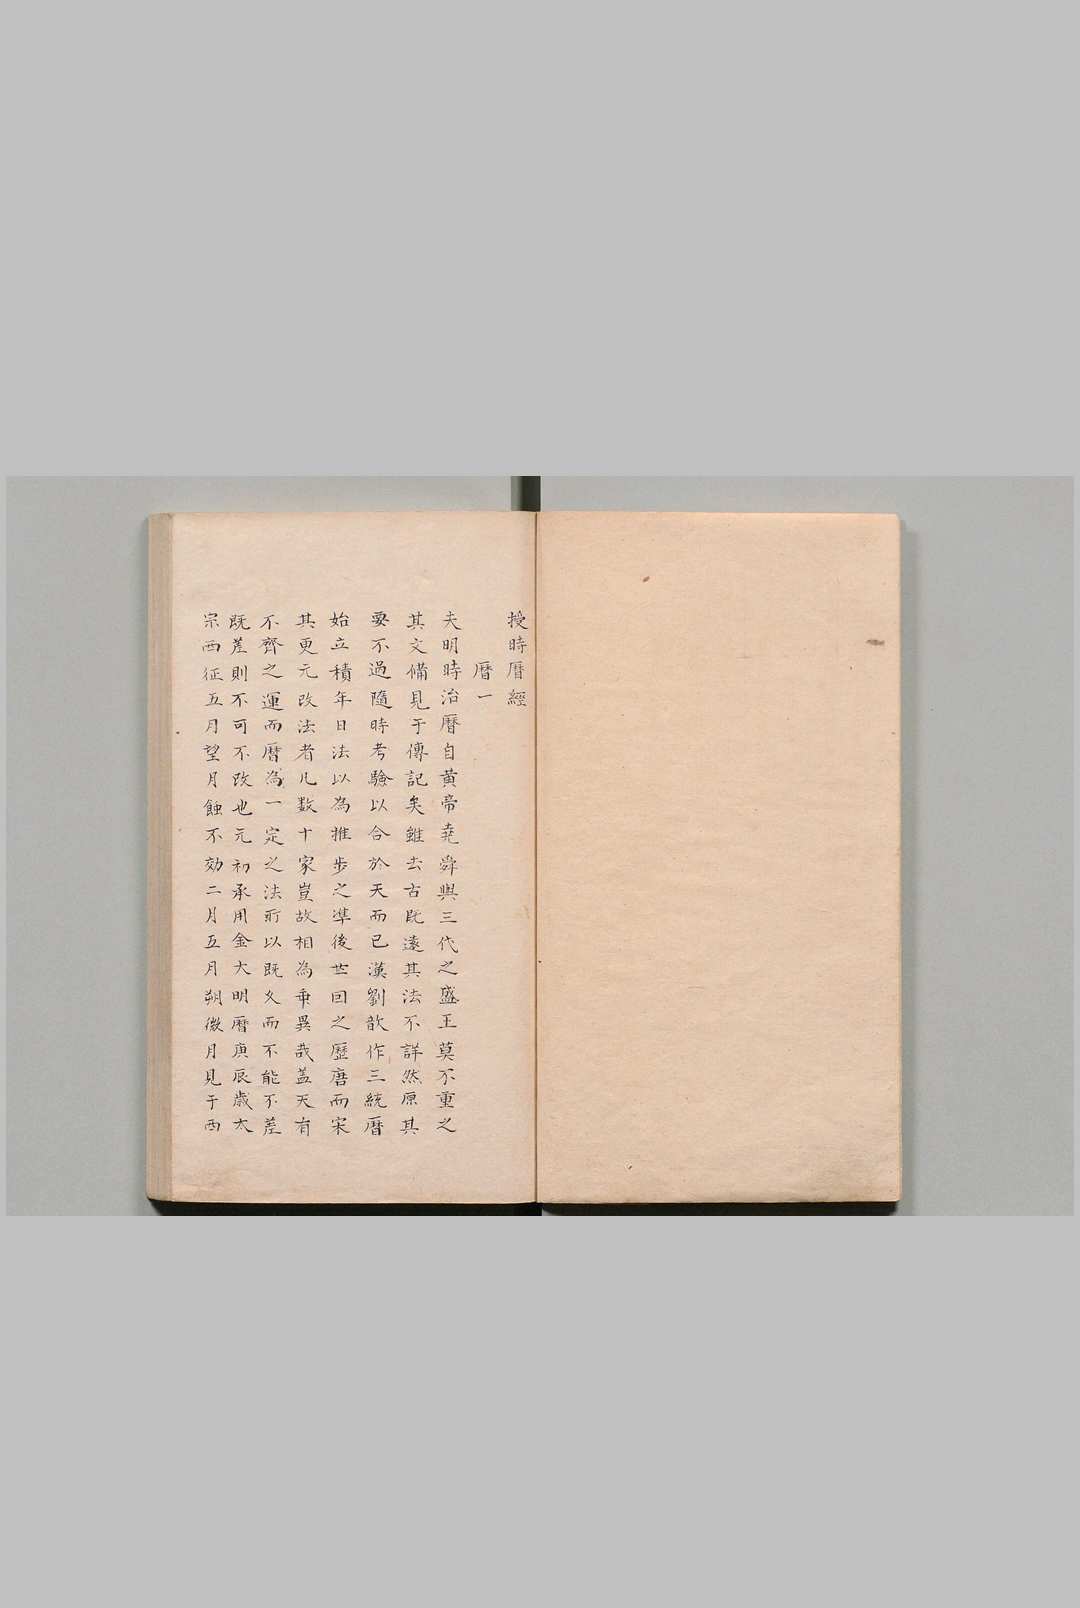 授時暦經
暦一
夫明時治暦自黄帝堯舜與三代之盛王莫不重之
其文備見于傳記矣雖去古既遠其法不詳然原其
要不過隨時考驗以合於天而已漢劉歆作三統暦
始立積年日法以為推步之準後世因之歴唐而宋
其更元改法者凡数十家豈故相為乖異哉盖天有
不齊之運而暦為一定之法所以既久而不能不差
既差則不可不改也元初承用金大明暦庚辰歳太
宗西征五月望月蝕不効二月五月朔微月見于西